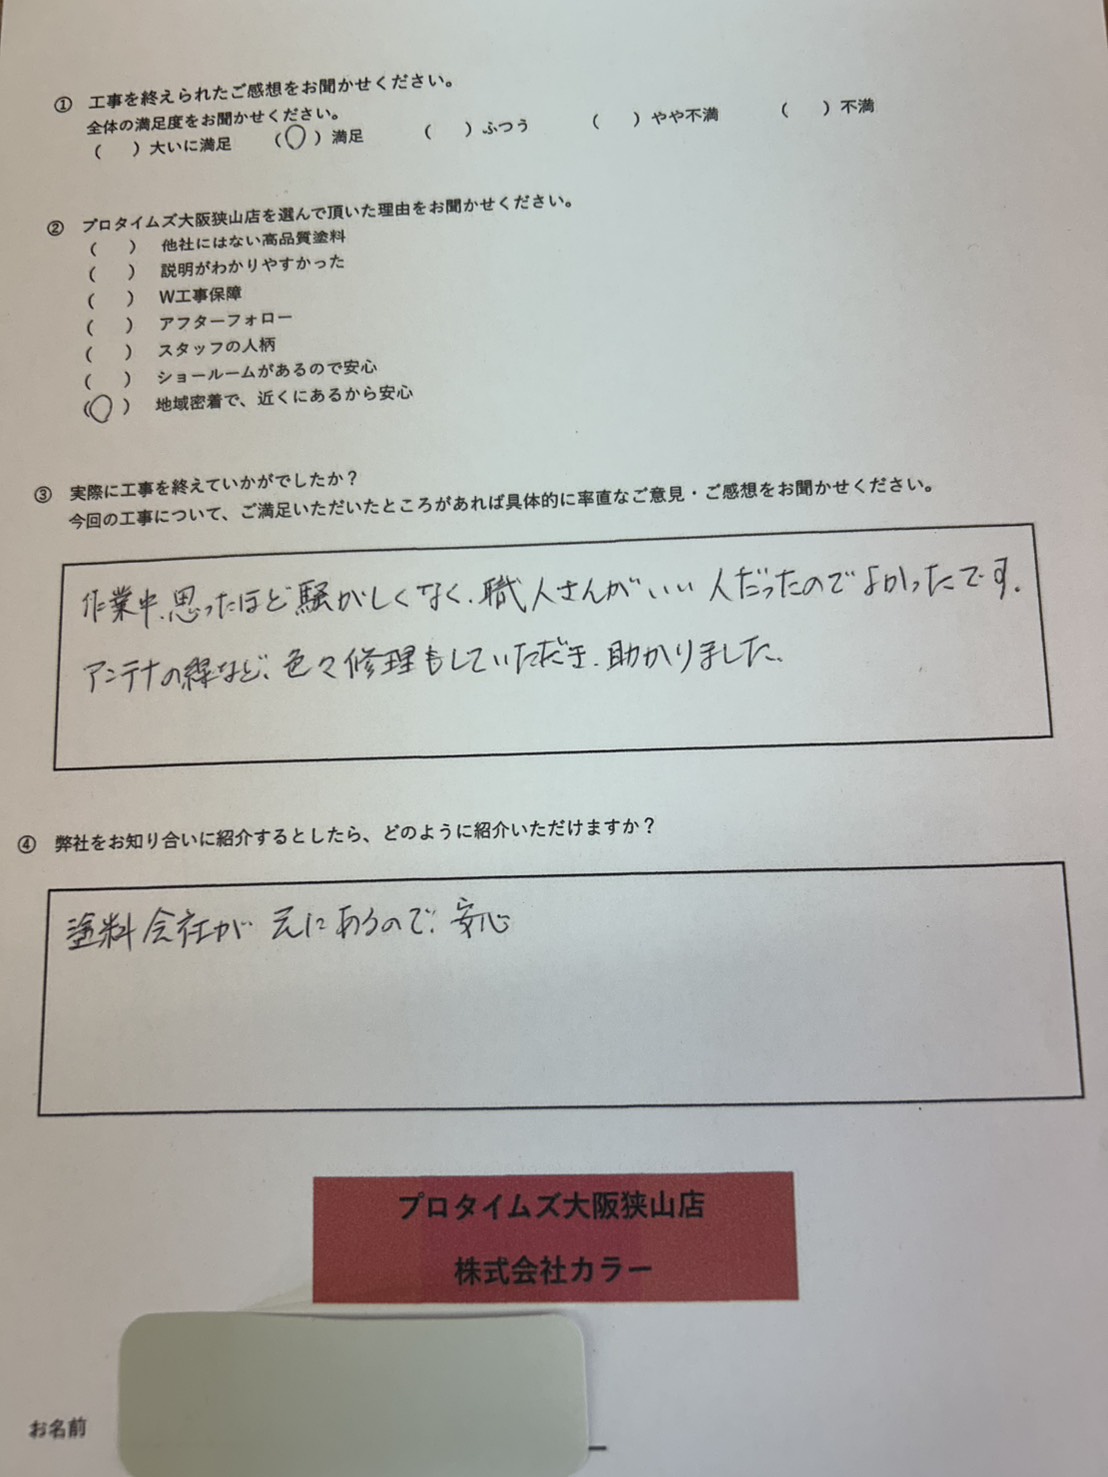 ① 工事を終えられたご感想をお聞かせください。
全体の満足度をお聞かせください。
（　）大いに満足 （○）満足 （　）ふつう （　）やや不満 （　）不満
② プロタイムズ大阪狭山店を選んで頂いた理由をお聞かせください。
（　） 他社にはない高品質塗料
（　） 説明がわかりやすかった
（　） W工事保障
（　） アフターフォロー
（　） スタッフの人柄
（　） ショールームがあるので安心
（○） 地域密着で、近くにあるから安心
③ 実際に工事を終えていかがでしたか？
今回の工事について、ご満足いただいたところがあれば具体的に率直なご意見・ご感想をお聞かせください。
作業中、思ったほど騒がしくなく、職人さんがいい人だったのでよかったです。
アンテナの線など、色々修理もしていただき、助かりました。
④ 弊社をお知り合いに紹介するとしたら、どのように紹介いただけますか？
塗料会社が元にあるので、安心
プロタイムズ大阪狭山店
株式会社カラー
お名前